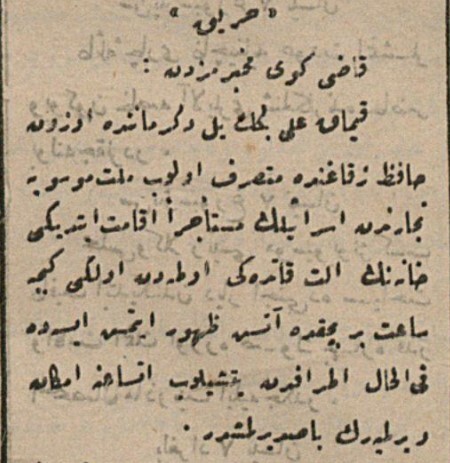 « حریق »
قاضی کوی مخبرمزدن :
قیماق علی بك یل دکرماننده اوزون
حافظ زقاغنده متصرف اولوب ملت موسویه
تجارندن اسرائیلك مستأجراً اقامت ایتدیکی
خانه‌نك الت قاتنده‌کی اوطه‌دن اولکی کیجه
ساعت بر بچقده آتش ظهور ایتمش ایسه‌ده
فی الحال اطرافدن یتشیلوب اتساعنه امکان
ویرلمیه‌رك باصدیرلمشدر .